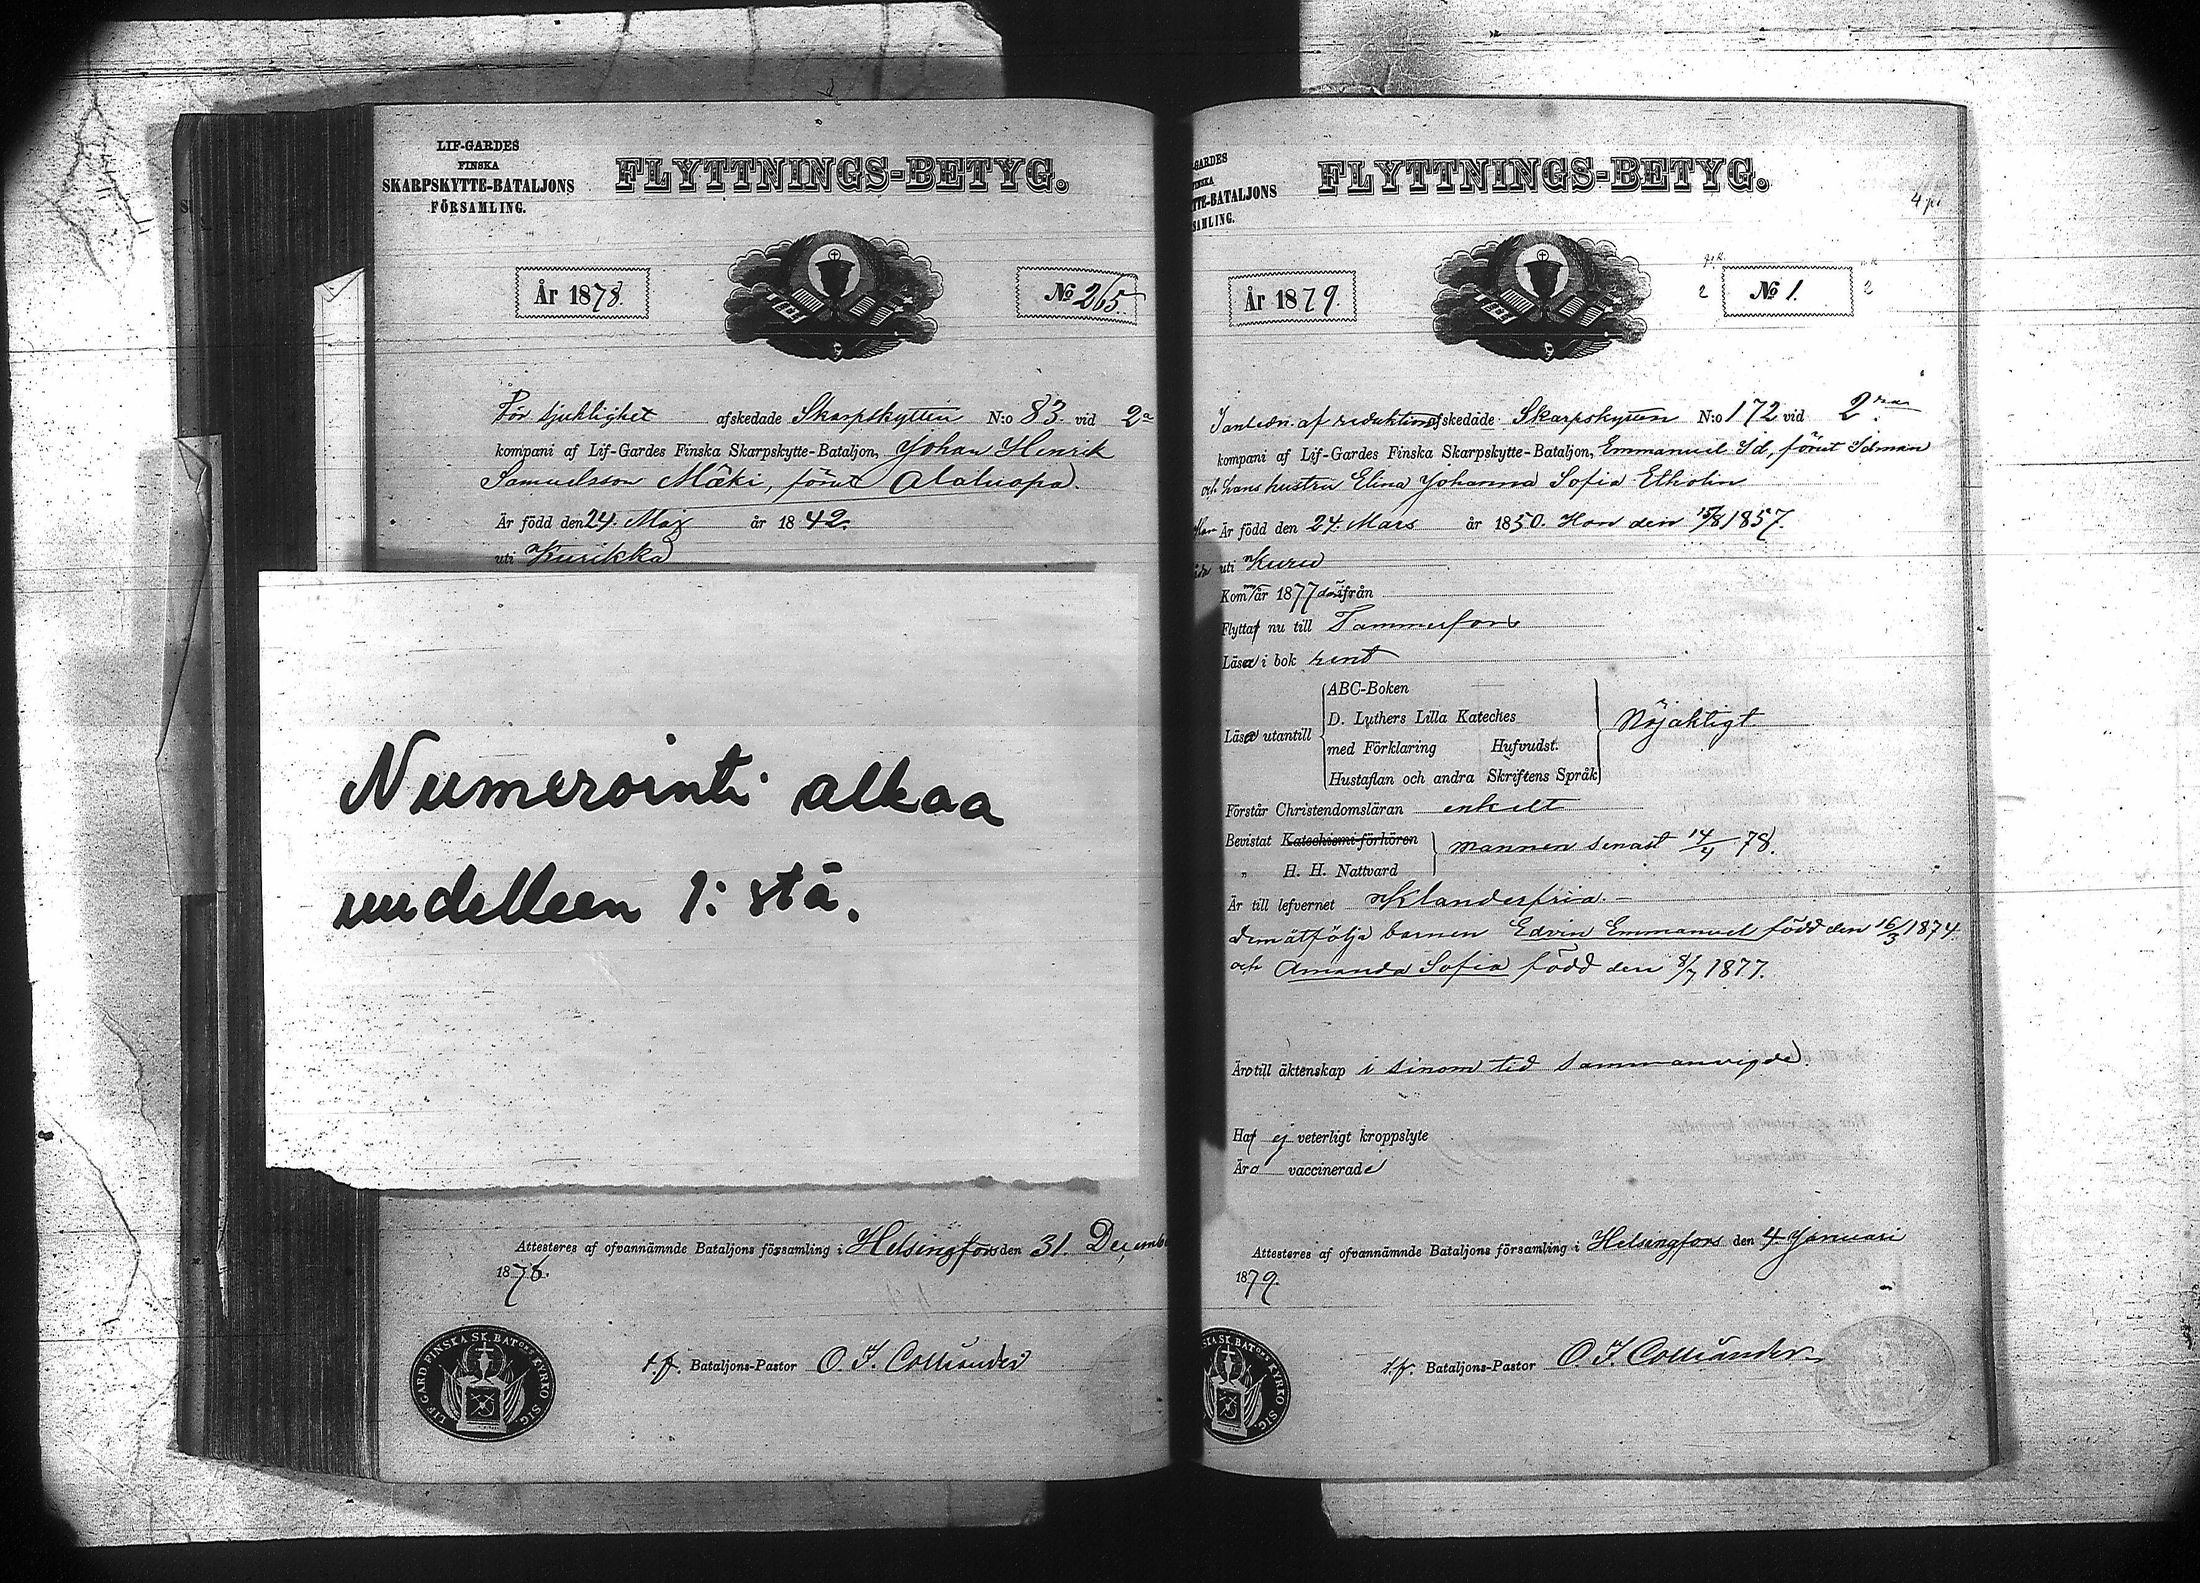 LIF-GARDES
FINSKA
SKARPSKYTTE-BATALJONS
FÖRSAMLING.
FLYTTNINGS-BETYG.
År 1878.
No 265.
För sjuklighet afskedade Skarpskytten N:o 83. vid 2a
kompani af Lif-Gardes Finska Skarpskytte-Bataljon, Johan Henrik
Samuelsson Mäki, förut Alaluopa.
Är född den 24. Maj år 1842.
uti Kurikka
Numerointi alkaa
uudelleen 1: stä.
Attesteres af ofvannämnde Bataljons församling i Helsingfors den 31. Decemb
1878.
LIF GARD FINSKA SK. BATONS KYRKO SIG.
t.f. Bataljons-Pastor O. F. Colliander
GARDES
NSKA
TTE-BATALJONS
SAMLING.
FLYTTNINGS-BETYG.
År 1879.
2 No 1. 2
I anledn. af reduktion afskedade Skarpskytten N:o 172 vid 2ra
kompani af Lif-Gardes Finska Skarpskytte-Bataljon, Emmanuel Id, förut Idman
och hans hustru Elina Johanna Sofia Elholin
Är född den 24. Mars år 1850. Hon den 15/8 1857.
uti Kuru
Kom år 1877 därifrån
Flytta nu till Tammerfors
Läsa i bok rent
Läsa utantill
ABC-Boken
D. Luthers Lilla Kateches
med Förklaring Hufvudst.
Hustaflan och andra Skriftens Språk
Nöjaktigt
Förstår Christendomsläran enkelt
Bevistat Katechismi-förhören
" H. H. Nattvard
mannen senast 14/4 78.
Är till lefvernet Klanderfria.-
Dem åtfölja barnen Edvin Emmanuel född den 16/3 1874.
och Amanda Sofia född den 8/7 1877.
Äro till äktenskap i sinom tid sammanvigde.
Haf ej veterligt kroppslyte
Äro vaccinerade
Attesteres af ofvannämnde Bataljons församling i Helsingfors den 4 Januari
1879.
SKA SK. BATONS KYRKO SIG.
t.f. Bataljons-Pastor O. F. Colliander